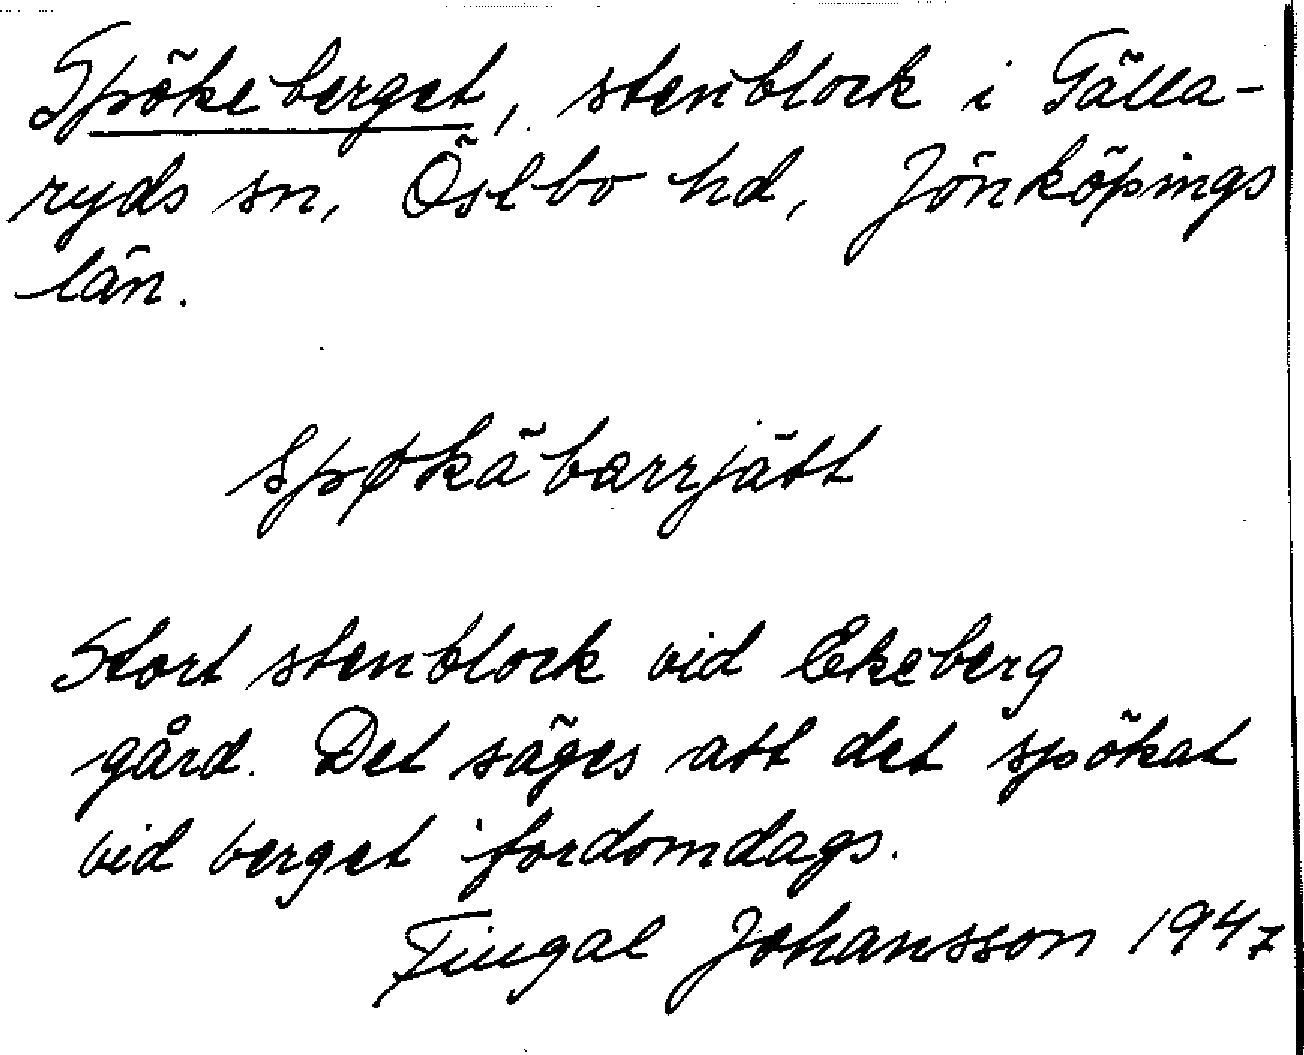 Spökeberget, stenblock i Gälla-
ryds sn, Östbo hd, Jönköpings
län.
spøkäbærrjätt
Stort stenblock vid Ekeberg
gård. Det säges att det spökat
vid berget fordomdags.
Fingal Johansson 1947